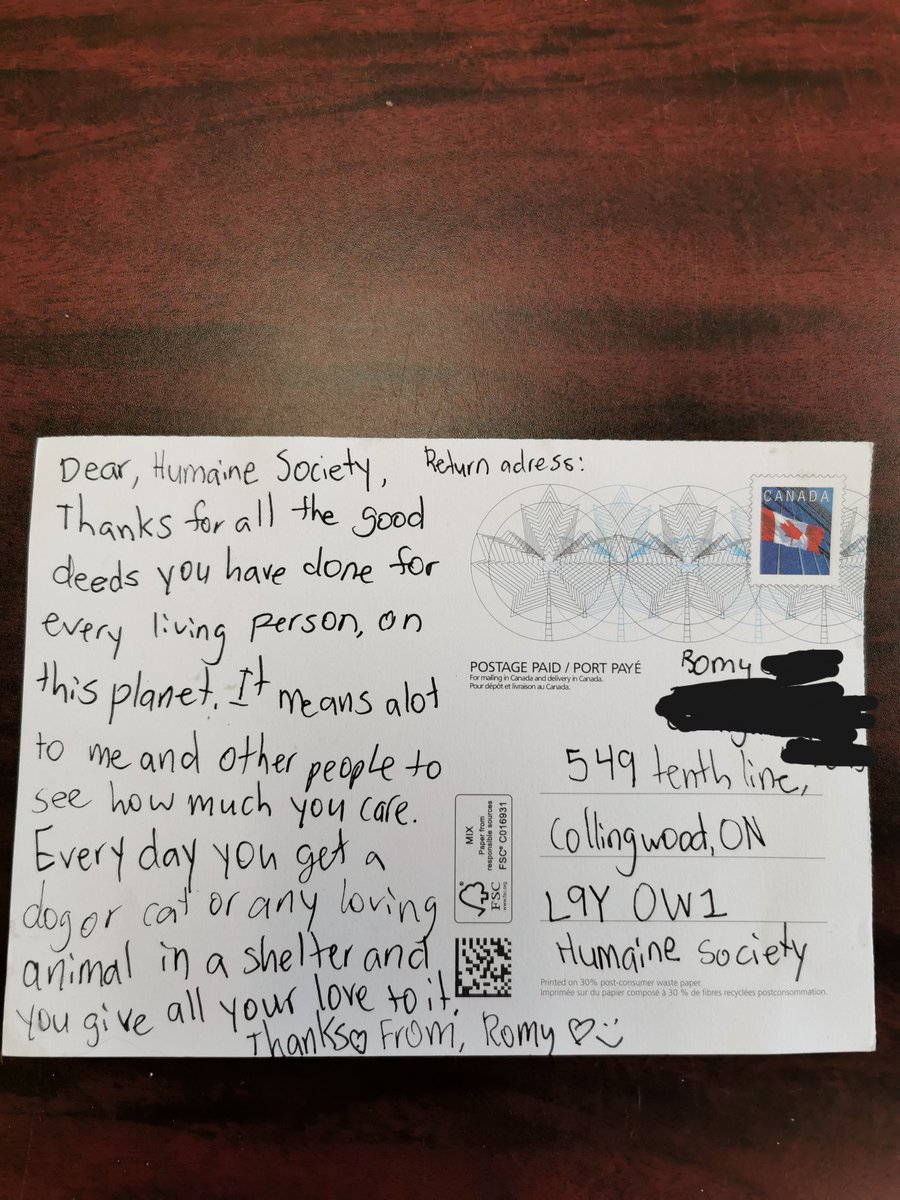 Dear, Humaine Society,
Thanks for all the good
deeds you have done for
every living person, on
this planet. It means alot
to me and other people to
see how much you care.
Every day you get a
dog or cat or any loving
animal in a shelter and
you give all your love to it.
Thanks♡ From, Romy ♡
Return adress:
CANADA
POSTAGE PAID / PORT PAYÉ
For mailing in Canada and delivery in Canada.
Pour dépôt et livraison au Canada.
Romy
549 tenth line,
Collingwood, ON
L9Y 0W1
Humaine Society
MIX
Paper from
responsible sources
FSC® C016931
FSC
www.fsc.org
Printed on 30% post-consumer waste paper.
Imprimée sur du papier composé à 30 % de fibres recyclées postconsommation.